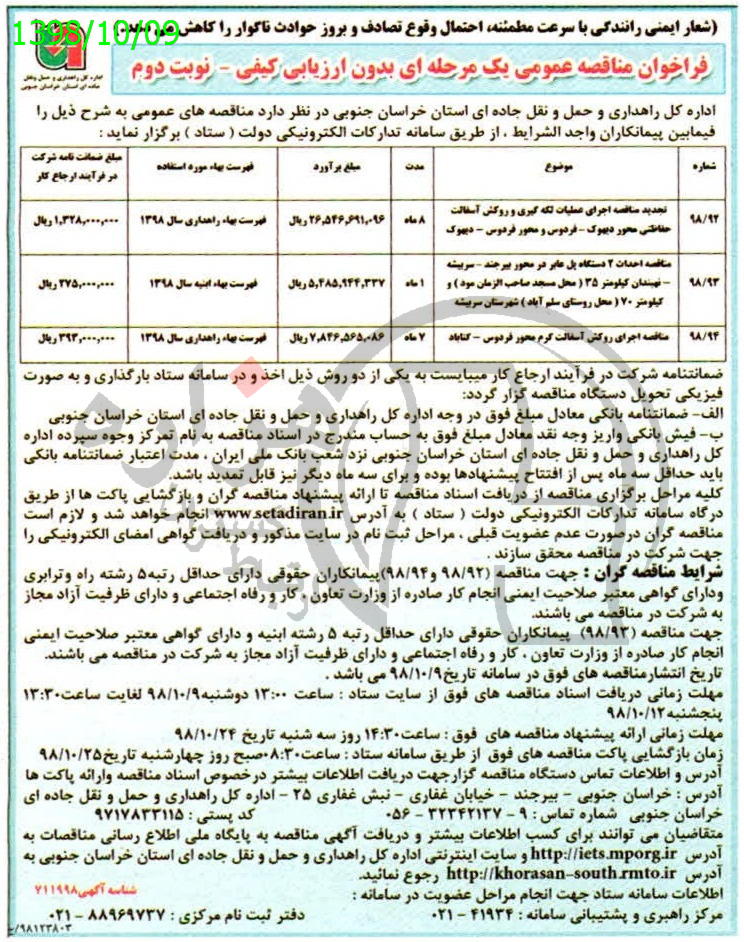 (شعار ایمنی رانندگی با سرعت مطمئنه، احتمال وقوع تصادف و بروز حوادث ناگوار را کاهش می دهد.)
1398/10/09
اداره کل راهداری و حمل و نقل
جاده ای استان خراسان جنوبی
فراخوان مناقصه عمومی یک مرحله ای بدون ارزیابی کیفی - نوبت دوم
اداره کل راهداری و حمل و نقل جاده ای استان خراسان جنوبی در نظر دارد مناقصه های عمومی به شرح ذیل را
فیمابین پیمانکاران واجد الشرایط ، از طریق سامانه تدارکات الکترونیکی دولت ( ستاد ) برگزار نماید :
شماره | موضوع | مدت | مبلغ برآورد | فهرست بهاء مورد استفاده | مبلغ ضمانت نامه شرکت در فرآیند ارجاع کار
۹۸/۹۲ | تجدید مناقصه اجرای عملیات لکه گیری و روکش آسفالت حفاظتی محور دیهوک - فردوس و محور فردوس - دیهوک | ۸ ماه | ۲۶,۵۴۶,۶۹۱,۰۹۶ ریال | فهرست بهاء راهداری سال ۱۳۹۸ | ۱,۳۲۸,۰۰۰,۰۰۰ ریال
۹۸/۹۳ | مناقصه احداث ۲ دستگاه پل عابر در محور بیرجند - سربیشه - نهبندان کیلومتر ۳۵ ( محل مسجد صاحب الزمان مود ) و کیلومتر ۷۰ ( محل روستای سلم آباد ) شهرستان سربیشه | ۱ ماه | ۵,۴۸۵,۹۴۴,۳۳۷ ریال | فهرست بهاء ابنیه سال ۱۳۹۸ | ۲۷۵,۰۰۰,۰۰۰ ریال
۹۸/۹۴ | مناقصه اجرای روکش آسفالت گرم محور فردوس - گناباد | ۷ ماه | ۷,۸۴۶,۵۶۵,۰۸۶ ریال | فهرست بهاء راهداری سال ۱۳۹۸ | ۳۹۳,۰۰۰,۰۰۰ ریال
ضمانتنامه شرکت در فرآیند ارجاع کار میبایست به یکی از دو روش ذیل اخذ و در سامانه ستاد بارگذاری و به صورت
فیزیکی تحویل دستگاه مناقصه گزار گردد:
الف- ضمانتنامه بانکی معادل مبلغ فوق در وجه اداره کل راهداری و حمل و نقل جاده ای استان خراسان جنوبی
ب- فیش بانکی واریز وجه نقد معادل مبلغ فوق به حساب مندرج در اسناد مناقصه به نام تمرکز وجوه سپرده اداره
کل راهداری و حمل و نقل جاده ای استان خراسان جنوبی نزد شعب بانک ملی ایران ، مدت اعتبار ضمانتنامه بانکی
باید حداقل سه ماه پس از افتتاح پیشنهادها بوده و برای سه ماه دیگر نیز قابل تمدید باشد.
کلیه مراحل برگزاری مناقصه از دریافت اسناد مناقصه تا ارائه پیشنهاد مناقصه گران و بازگشایی پاکت ها از طریق
درگاه سامانه تدارکات الکترونیکی دولت ( ستاد ) به آدرس www.setadiran.ir انجام خواهد شد و لازم است
مناقصه گران درصورت عدم عضویت قبلی ، مراحل ثبت نام در سایت مذکور و دریافت گواهی امضای الکترونیکی را
جهت شرکت در مناقصه محقق سازند .
شرایط مناقصه گران : جهت مناقصه (۹۸/۹۲ و۹۸/۹۴)پیمانکاران حقوقی دارای حداقل رتبه۵ رشته راه وترابری
ودارای گواهی معتبر صلاحیت ایمنی انجام کار صادره از وزارت تعاون ، کار و رفاه اجتماعی و دارای ظرفیت آزاد مجاز
به شرکت در مناقصه می باشند.
جهت مناقصه (۹۸/۹۳) پیمانکاران حقوقی دارای حداقل رتبه ۵ رشته ابنیه و دارای گواهی معتبر صلاحیت ایمنی
انجام کار صادره از وزارت تعاون ، کار و رفاه اجتماعی و دارای ظرفیت آزاد مجاز به شرکت در مناقصه می باشند.
تاریخ انتشارمناقصه های فوق در سامانه تاریخ۹۸/۱۰/۹ می باشد .
مهلت زمانی دریافت اسناد مناقصه های فوق از سایت ستاد : ساعت ۱۳:۰۰ دوشنبه۹۸/۱۰/۹ لغایت ساعت۱۳:۳۰
پنجشنبه۹۸/۱۰/۱۲
مهلت زمانی ارائه پیشنهاد مناقصه های فوق : ساعت۱۴:۳۰ روز سه شنبه تاریخ ۹۸/۱۰/۲۴
زمان بازگشایی پاکت مناقصه های فوق از طریق سامانه ستاد : ساعت۰۸:۳۰صبح روز چهارشنبه تاریخ۹۸/۱۰/۲۵
آدرس و اطلاعات تماس دستگاه مناقصه گزارجهت دریافت اطلاعات بیشتر درخصوص اسناد مناقصه وارائه پاکت ها
آدرس : خراسان جنوبی - بیرجند - خیابان غفاری - نبش غفاری ۲۵ - اداره کل راهداری و حمل و نقل جاده ای
خراسان جنوبی شماره تماس : ۹ - ۳۲۳۴۲۱۳۷ - ۰۵۶ کد پستی : ۹۷۱۷۸۳۳۱۱۵
متقاضیان می توانند برای کسب اطلاعات بیشتر و دریافت آگهی مناقصه به پایگاه ملی اطلاع رسانی مناقصات به
آدرس http://iets.mporg.ir و سایت اینترنتی اداره کل راهداری و حمل و نقل جاده ای استان خراسان جنوبی به
آدرس http://khorasan-south.rmto.ir رجوع نمائید.
شناسه آگهی۷۱۱۹۹۸
اطلاعات سامانه ستاد جهت انجام مراحل عضویت در سامانه :
مرکز راهبری و پشتیبانی سامانه : ۴۱۹۳۴ - ۰۲۱ دفتر ثبت نام مرکزی : ۸۸۹۶۹۷۳۷ - ۰۲۱
۹۸۱۲۳۸۰۳/خ